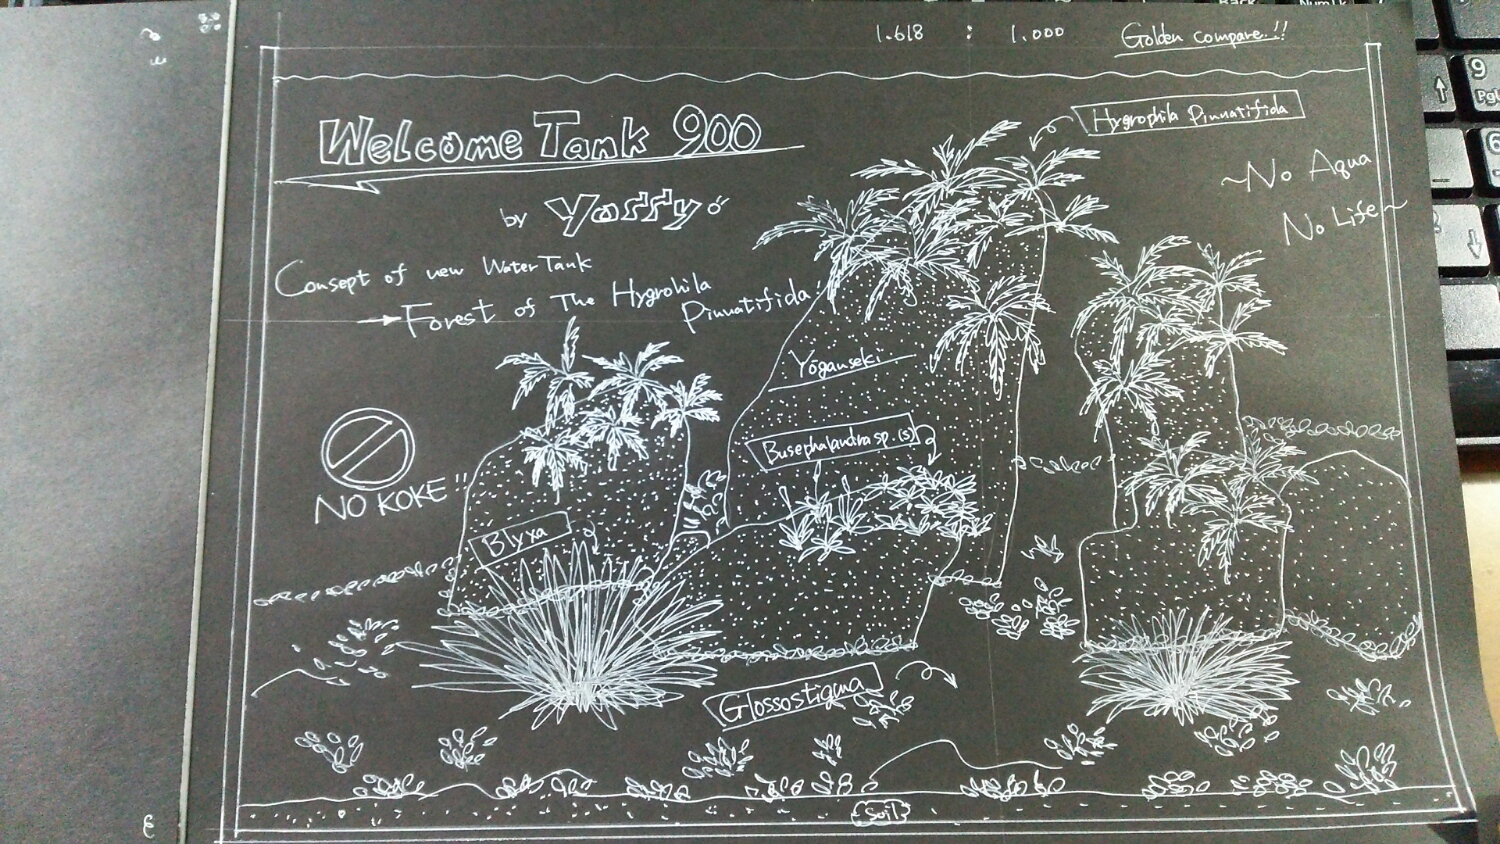 1.618 : 1.000 Golden compare!!
Welcome Tank 900
by Yassy!
Hygrophila Pinnatifida
~No Aqua
No Life~
Consept of new Water Tank
→Forest of The Hygrohila
Pinnatifida!
Yōganseki
Busephalandra sp.(s)
NO KOKE!!
Blyxa
Glossostigma
Soil
9